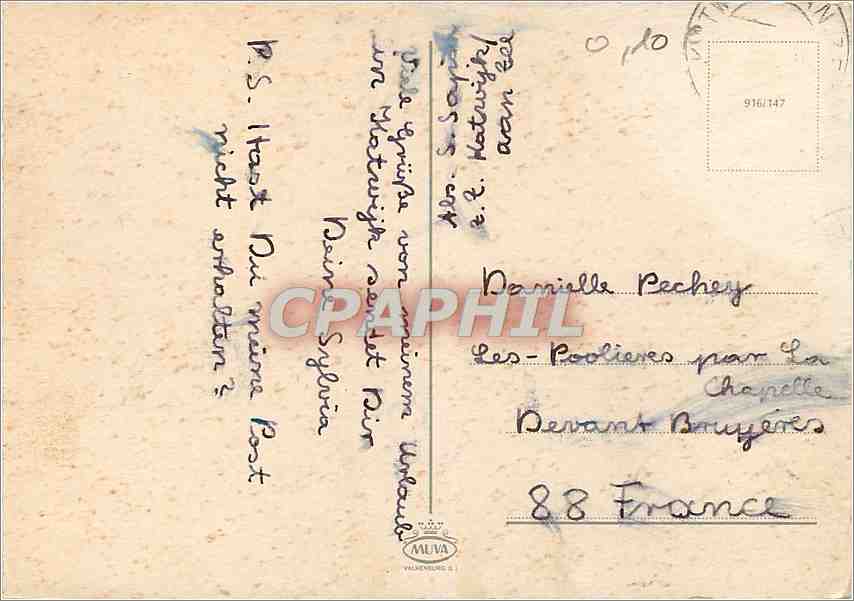 Viele Grüße von meinem Urlaub
in Katwijk sendet Dir
Deine Sylvia
P.S. Hast Du meine Post
nicht erhalten?
Abs. S.
z. Z. Katwijk/
aan Zee
0,10
916/147
Danielle Pechey
Les-Poolieres par La
Chapelle
Devant Bruyéres
88 France
CPAPHIL
MUVA
VALKENBURG